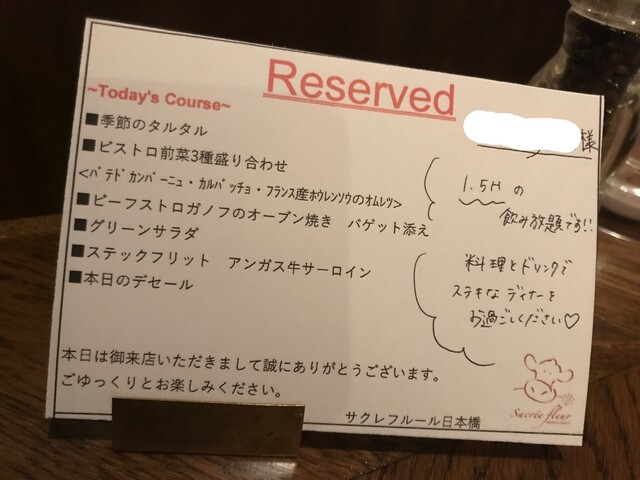 Reserved
~Today's Course~
様
■季節のタルタル
■ビストロ前菜3種盛り合わせ
<ﾊﾟﾃﾄﾞｶﾝﾊﾟｰﾆｭ・ｶﾙﾊﾟｯﾁｮ・ﾌﾗﾝｽ産ﾎｳﾚﾝｿｳのｵﾑﾚﾂ>
■ビーフストロガノフのオーブン焼き　バゲット添え
■グリーンサラダ
■ステックフリット　アンガス牛サーロイン
■本日のデセール
1.5Hの
飲み放題です!!
料理とドリンクで
ステキなディナーを
お過ごしください♡
本日は御来店いただきまして誠にありがとうございます。
ごゆっくりとお楽しみください。
サクレフルール日本橋
Sacrée fleur